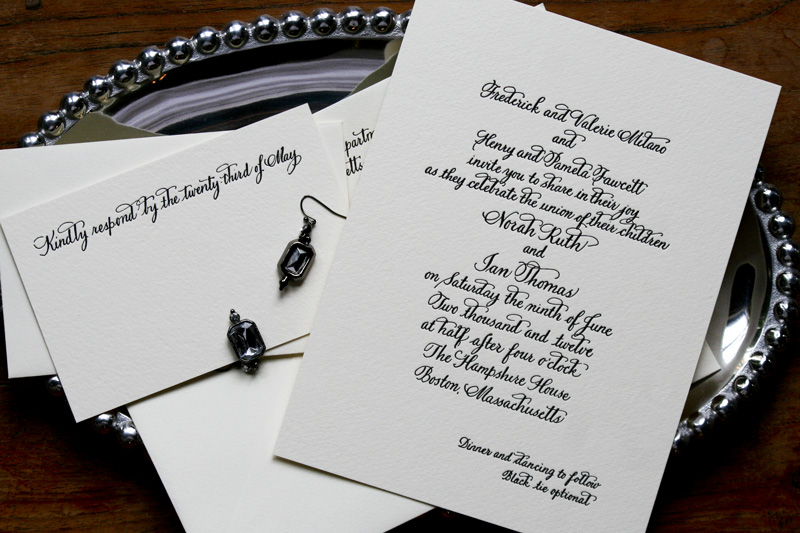 Kindly respond by the twenty-third of May
Frederick and Valerie Milano
and
Henry and Pamela Fawcett
invite you to share in their joy
as they celebrate the union of their children
Norah Ruth
and
Ian Thomas
on Saturday the ninth of June
Two thousand and twelve
at half after four o'clock
The Hampshire House
Boston, Massachusetts
Dinner and dancing to follow
Black tie optional